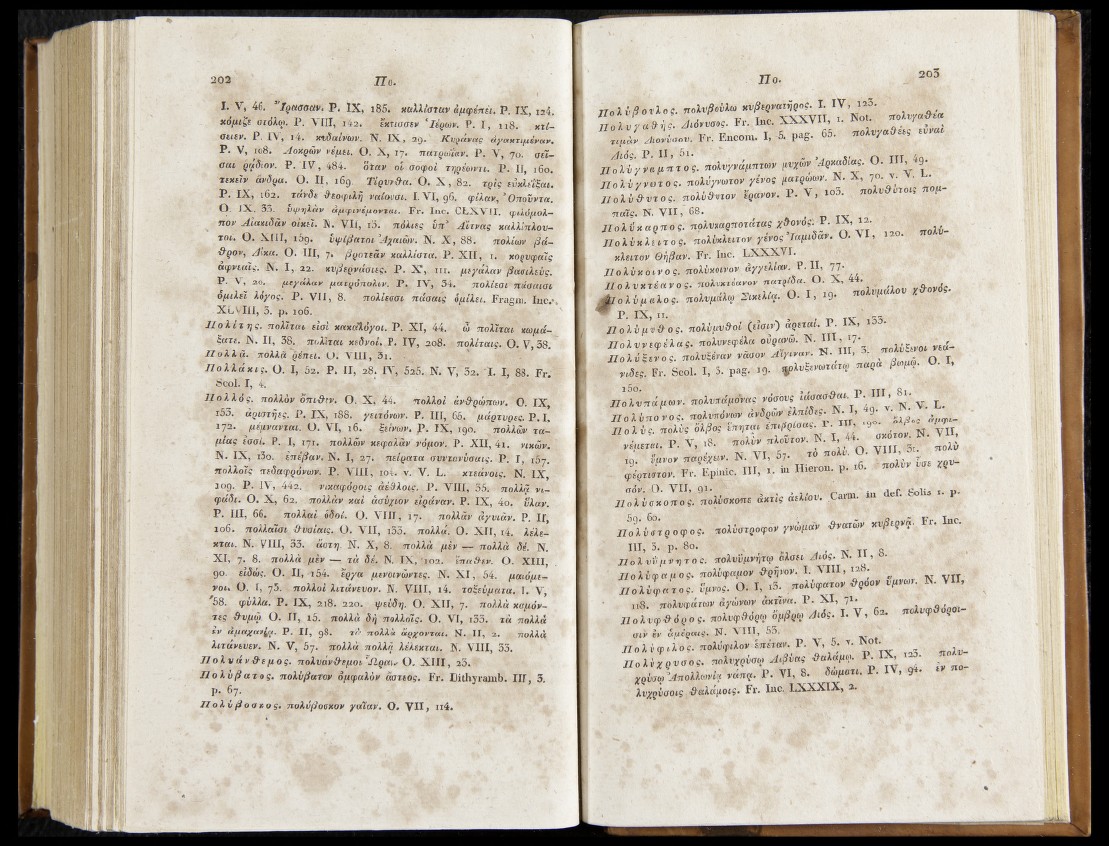 202
Πο.
I. V, 46. Ἴρασσαν. P. IX, 185. καλλίσταν ἀμφέπει. P. IX, 124.
κόμιζε στόλῳ. P. VIII, 142. ἔκτισσεν Ἱέρων. P. I, 118. κτί-
σειεν. P. IV, 14. κυδαίνων. N. IX, 29. Κυράνας ἀγακτιμέναν.
P. V, 108. Λοκρῶν νέμει. O. X, 17. πατρωΐαν. P. V, 70. σεῖ-
σαι ῥᾴδιον. P. IV, 484. ὅταν οἱ σοφοὶ τηρέωντι. P. II, 160.
τεκεῖν ἄνδρα. O. II, 169. Τίρυνθα. O. X, 82. τρὶς εὐκλεΐξαι.
P. IX, 162. τάνδε θεοφιλῆ ναίουσι. I. VI, 96. φίλαν, Ὀποῦντα.
O. IX. 33. ὑψηλὰν ἀμφινέμονται. Fr. Inc. CLXVII. φιλόμολ-
πον Αἰακιδᾶν οἰκεῖ. N. VII, 13. πόλιες ὑπ' Αἴτνας καλλίπλου-
τοι. O. XIII, 159. ὑψίβατοι Ἀχαιῶν. N. X, 88. πολίων βά-
θρον, Δίκα. O. III, 7. βροτεᾶν καλλίστα. P. XII, 1. κορυφαῖς
ἀφνεαῖς. N. I, 22. κυβερνάσιες. P. X, 111. μεγάλαν βασιλεύς.
P. V, 20. μεγάλαν ματρόπολιν. P. IV, 34. πολίεσι πάσαισι
ὁμιλεῖ λόγος. P. VII, 8. πολίεσσι πάσαις ὁμιλεῖ. Fragm. Inc.
XLVIII, 3. p. 106.
Πολίτης. πολῖται εἰσὶ κακολόγοι. P. XI, 44. ὦ πολῖται κωμά-
ξατε. N. II, 38. πολῖται κεδνοί. P. IV, 208. πολίταις. O. V, 38.
Πολλά. πολλὰ ῥέπει. O. VIII, 31.
Πολλάκις. O. I, 52. P. II, 28. IV, 525. N. V, 32. I. I, 88. Fr.
Scol. I, 4.
Πολλός. πολλὸν ὄπιθεν. O. X, 44. πολλοὶ ἀνθρώπων. O. IX,
153. ἀριστῆες. P. IX, 188. γειτόνων. P. III, 66. μάρτυρες. P. I,
172. μέμνανται. O. VI, 16. ξείνων. P. IX, 190. πολλῶν τα-
μίας ἐσσί. P. I, 171. πολλῶν κεφαλᾶν νόμον. P. XII, 41. νικῶν.
N. IX, 130. ἐπέβαν. N. I, 27. πείρατα συντανύσαις. P. I, 157.
πολλοῖς πεδαφρόνων. P. VIII, 104. v. V. L. κτεάνοις. N. IX,
109. P. IV, 442. νικαφόροις ἀέθλοις. P. VIII, 35. πολλᾷ νι-
φάδι. O. X, 62. πολλὰν καὶ ἀσύχιον εἰράναν. P. IX, 40. ὕλαν.
P. III, 66. πολλαὶ ὁδοί. O. VIII, 17. πολλᾶν ἀγυιᾶν. P. II,
106. πολλαῖσι θυσίαις. O. VII, 133. πολλά. O. XII, 14. λέλε-
κται. N. VIII, 33. ἄστη. N. X, 8. πολλὰ μὲν — πολλὰ δέ. N.
XI, 7. 8. πολλὰ μὲν — τὰ δέ. N. IX, 102. ἔπαθεν. O. XIII,
90. εἰδώς. O. II, 154. ἔργα μενοινῶντες. N. XI, 54. μαιόμε-
νοι. O. I, 75. πολλοὶ λιτάνευον. N. VIII, 14. τοξεύματα. I. V,
58. φύλλα. P. IX, 218. 220. ψεύδη. O. XII, 7. πολλὰ καμόν-
τες θυμῷ O. II, 15. πολλὰ δὴ πολλοῖς. O. VI, 133. τὰ πολλὰ
ἐν ἀμαχανίᾳ. P. II, 98. τὰ πολλὰ ἄρχονται. N. II, 2. πολλὰ
λιτάνευεν. N. V, 57. πολλὰ πολλᾷ λέλεκται. N. VIII, 33.
Πολυάνθεμος. πολυάνθεμοι Ὧραι. O. XIII, 23.
Πολύβατος. πολύβατον ὀμφαλὸν ἄστεος. Fr. Dithyramb. III, 3.
p. 67.
Πολύβοσκος. πολύβοσκον γαῖαν. O. VII, 114.
Πο.
203
Πολύβουλος. πολυβούλω κυβερνατῆρος. I. IV, 123.
Πολυγαθής. Διόνυσος. Fr. Inc. XXXVII, 1. Not. πολυγαθέα
τιμὰν Διονύσου. Fr. Encom. I, 5. pag. 65. πολυγαθέες εὐναὶ
Διός. P. II, 51.
Πολύγναμπτος. πολυγνάμπτων μυχῶν Ἀρκαδίας. O. III, 49.
Πολύγνωτος. πολύγνωτον γένος ματρώων. N. X, 70. v. V. L.
Πολύθυτος. πολύθυτον ἔρανον. P. V, 103. πολυθύτοις πομ-
παῖς. N. VII, 68.
Πολύκαρπος. πολυκαρποτάτας χθονός. P. IX, 12.
Πολύκλειτος. πολύκλειτον γένος Ἰαμιδᾶν. O. VI, 120. πολύ-
κλειτον Θήβαν. Fr. Inc. LXXXVI.
Πολύκοινος. πολύκοινον ἀγγελίαν. P. II, 77.
Πολυκτέανος. πολυκτέανον πατρίδα. O. X, 44.
Πολύμαλος. πολυμάλῳ Σικελίᾳ. O. I, 19. πολυμάλου χθονός.
P. IX, 11.
Πολύμυθος. πολύμυθοι (εἰσίν) ἀρεταί. P. IX, 133.
Πολυνεφέλας. πολυνεφέλα οὐρανῶ. N. III, 17.
Πολύξενος. πολυξέναν νᾶσον Αἴγιναν. N. III, 3. πολύξενοι νεά-
νιδες. Fr. Scol. I, 3. pag. 19. πολυξενωτάτῳ παρὰ βωμῷ. O. I,
150.
Πολυπάμων. πολυπάμονας νόσους ἰάσασθαι. P. III, 81.
Πολύπονος. πολυπόνων ἀνδρῶν ἐλπίδες. N. I, 49. v. N. V. L.
Πολύς. πολὺς ὄλβος ἕπηται ἐπιβρίσαις. P. III, 190. ὄλβος ἀμφι-
νέμεται. P. V, 18. πολὺν πλοῦτον. N. I, 44. σκότον. N. VII,
19. ὕμνον παρέχειν. N. VI, 57. τὸ πολύ. O. VIII, 31. πολὺ
φέρτιστον. Fr. Epinic. III, 1. in Hieron. p. 16. πολὺν ὗσε χρυ-
σόν. O. VII, 91.
Πολύσκοπος. πολύσκοπε ἀκτὶς ἀελίου. Carm. in def. Solis 1. p.
59. 60.
Πολύστροφος. πολύστροφον γνώμαν θνατῶν κυβερνᾷ. Fr. Inc.
III, 3. p. 80.
Πολυύμνητος. πολυϋμνήτῳ ἄλσει Διός. N. II, 8.
Πολύφαμος. πολύφαμον θρῆνον. I. VIII, 128.
Πολύφατος. ὕμνος. O. I, 13. πολύφατον θρόον ὕμνων. N. VII,
118. πολυφάτων ἀγώνων ἀκτῖνα. P. XI, 71.
Πολύφθορος. πολυφθόρῳ ὄμβρῳ Διός. I. V, 62. πολυφθόροι-
σιν ἐν ἁμέραις. N. VIII, 53.
Πολύφιλος. πολύφιλον ἑπέταν. P. V, 5. v. Not.
Πολύχρυσος. πολυχρύσῳ Λιβύας θαλάμῳ. P. IX, 123. πολυ-
χρύσῳ Ἀπολλωνίᾳ νάπᾳ. P. VI, 8. δώματι. P. IV, 94. ἐν πο-
λυχρύσοις θαλάμοις. Fr. Inc. LXXXIX, 2.